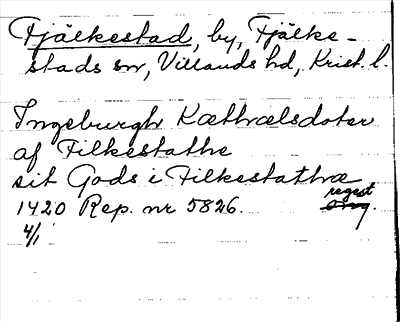 Fjälkestad, by, Fjälke-
stads sn, Villands hd, Krist. l.
Ingeburgh Kæthrælsdoter
af Filkestathe
sit Gods i Filkestathæ
regest
1420 Rep. nr 5826. orig.
4/1